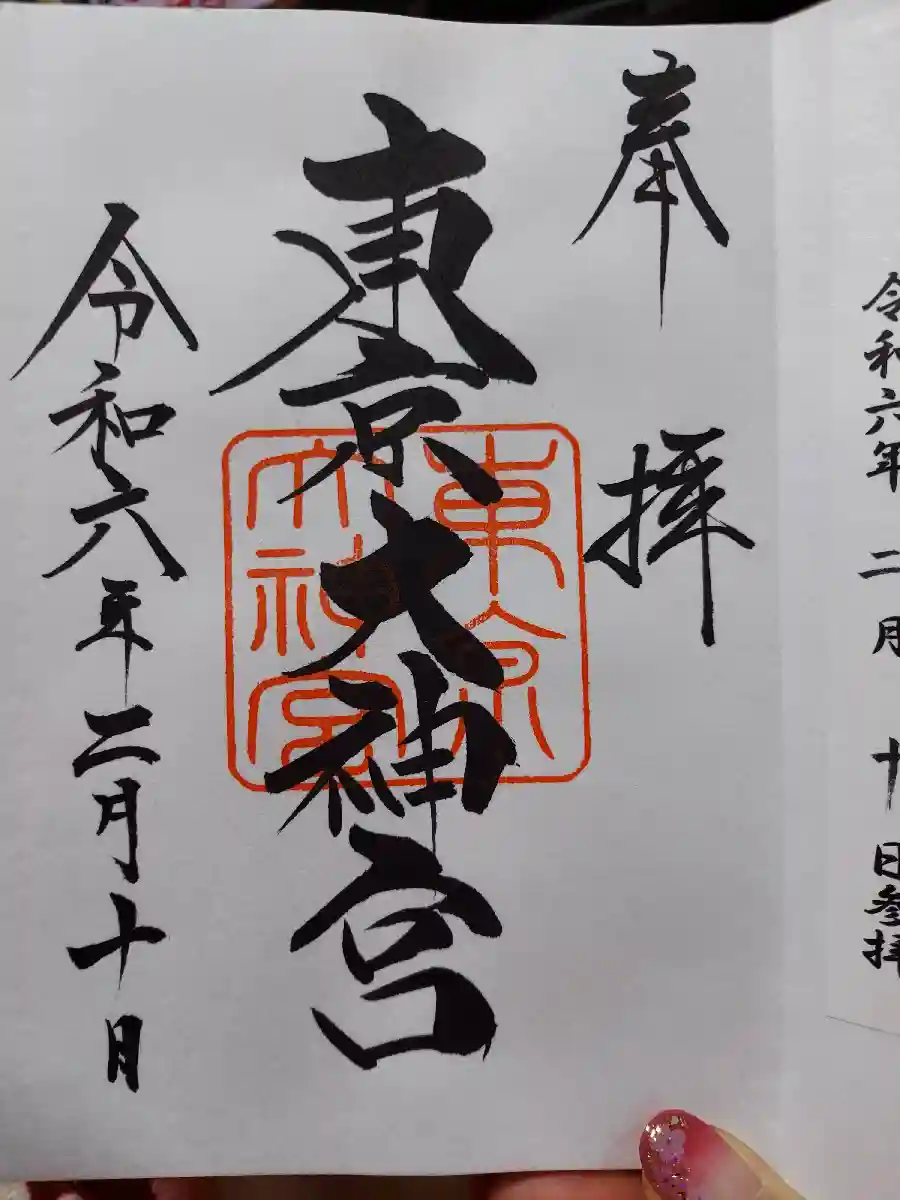 令和六年 二月 十日参拝
奉拝
東京大神宮
東京
大神宮
令和六年二月十日